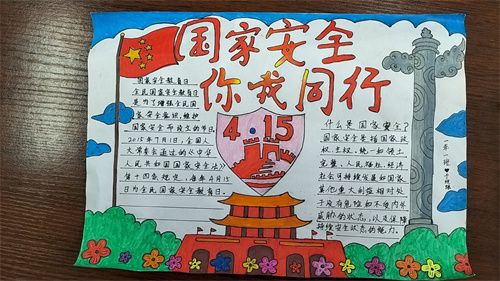 国家安全
你我同行
国家安全教育日
全民国家安全教育日
是为了增强全民国
家安全意识，维护
国家安全而设立的节日。
2015年7月1日，全国人
大常委会通过的《中华
人民共和国国家安全法》
第十四条规定，每年4月15
日为全民国家安全教育日。
4.15
什么是国家安全？
国家安全是指国家政
权、主权、统一和领土
完整、人民福祉、经济
社会可持续发展和国家
其他重大利益相对处
于没有危险和不受内外
威胁的状态，以及保障
持续安全状态的能力。